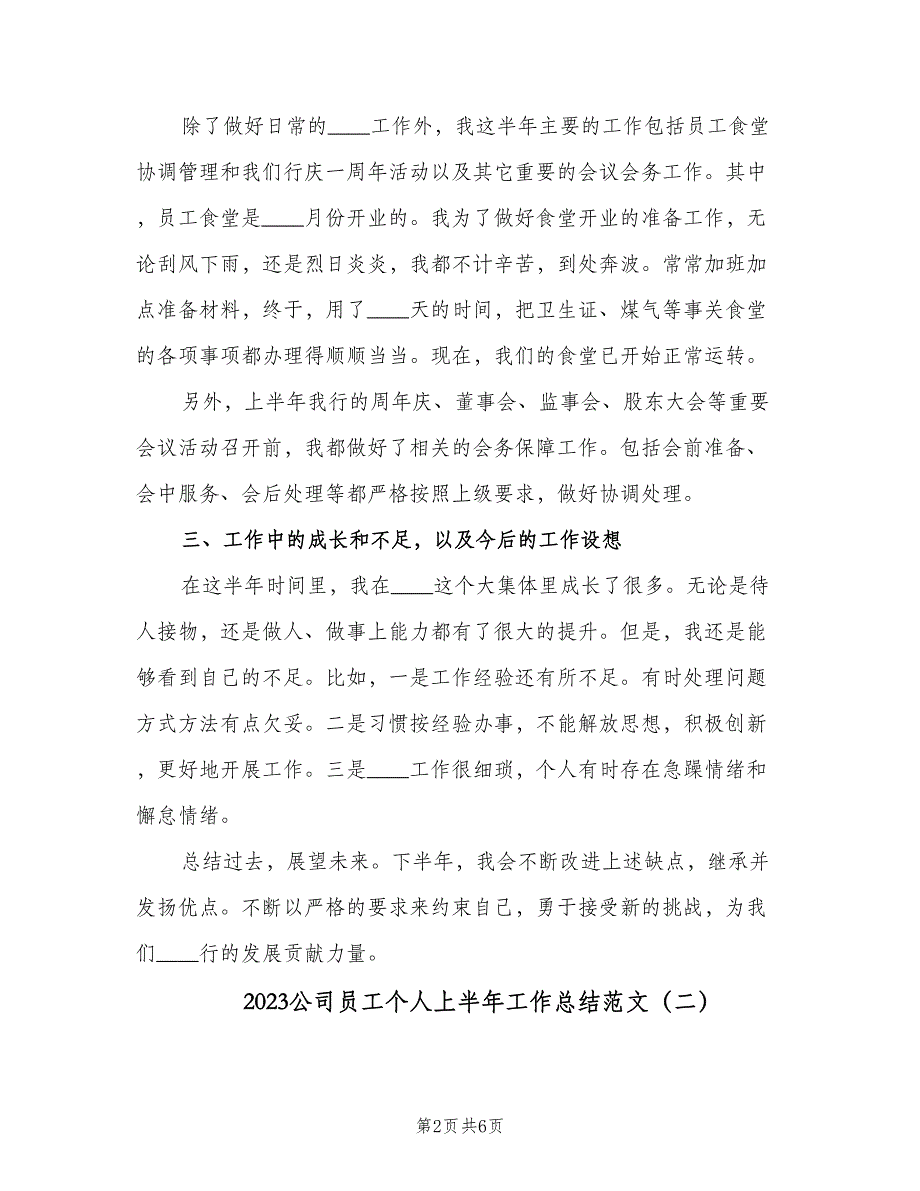 除了做好日常的____工作外，我这半年主要的工作包括员工食堂
协调管理和我们行庆一周年活动以及其它重要的会议会务工作。其中
，员工食堂是____月份开业的。我为了做好食堂开业的准备工作，无
论刮风下雨，还是烈日炎炎，我都不计辛苦，到处奔波。常常加班加
点准备材料，终于，用了____天的时间，把卫生证、煤气等事关食堂
的各项事项都办理得顺顺当当。现在，我们的食堂已开始正常运转。
另外，上半年我行的周年庆、董事会、监事会、股东大会等重要
会议活动召开前，我都做好了相关的会务保障工作。包括会前准备、
会中服务、会后处理等都严格按照上级要求，做好协调处理。
三、工作中的成长和不足，以及今后的工作设想
在这半年时间里，我在____这个大集体里成长了很多。无论是待
人接物，还是做人、做事上能力都有了很大的提升。但是，我还是能
够看到自己的不足。比如，一是工作经验还有所不足。有时处理问题
方式方法有点欠妥。二是习惯按经验办事，不能解放思想，积极创新
，更好地开展工作。三是____工作很细琐，个人有时存在急躁情绪和
懈怠情绪。
总结过去，展望未来。下半年，我会不断改进上述缺点，继承并
发扬优点。不断以严格的要求来约束自己，勇于接受新的挑战，为我
们____行的发展贡献力量。
2023公司员工个人上半年工作总结范文（二）
第2页 共6页